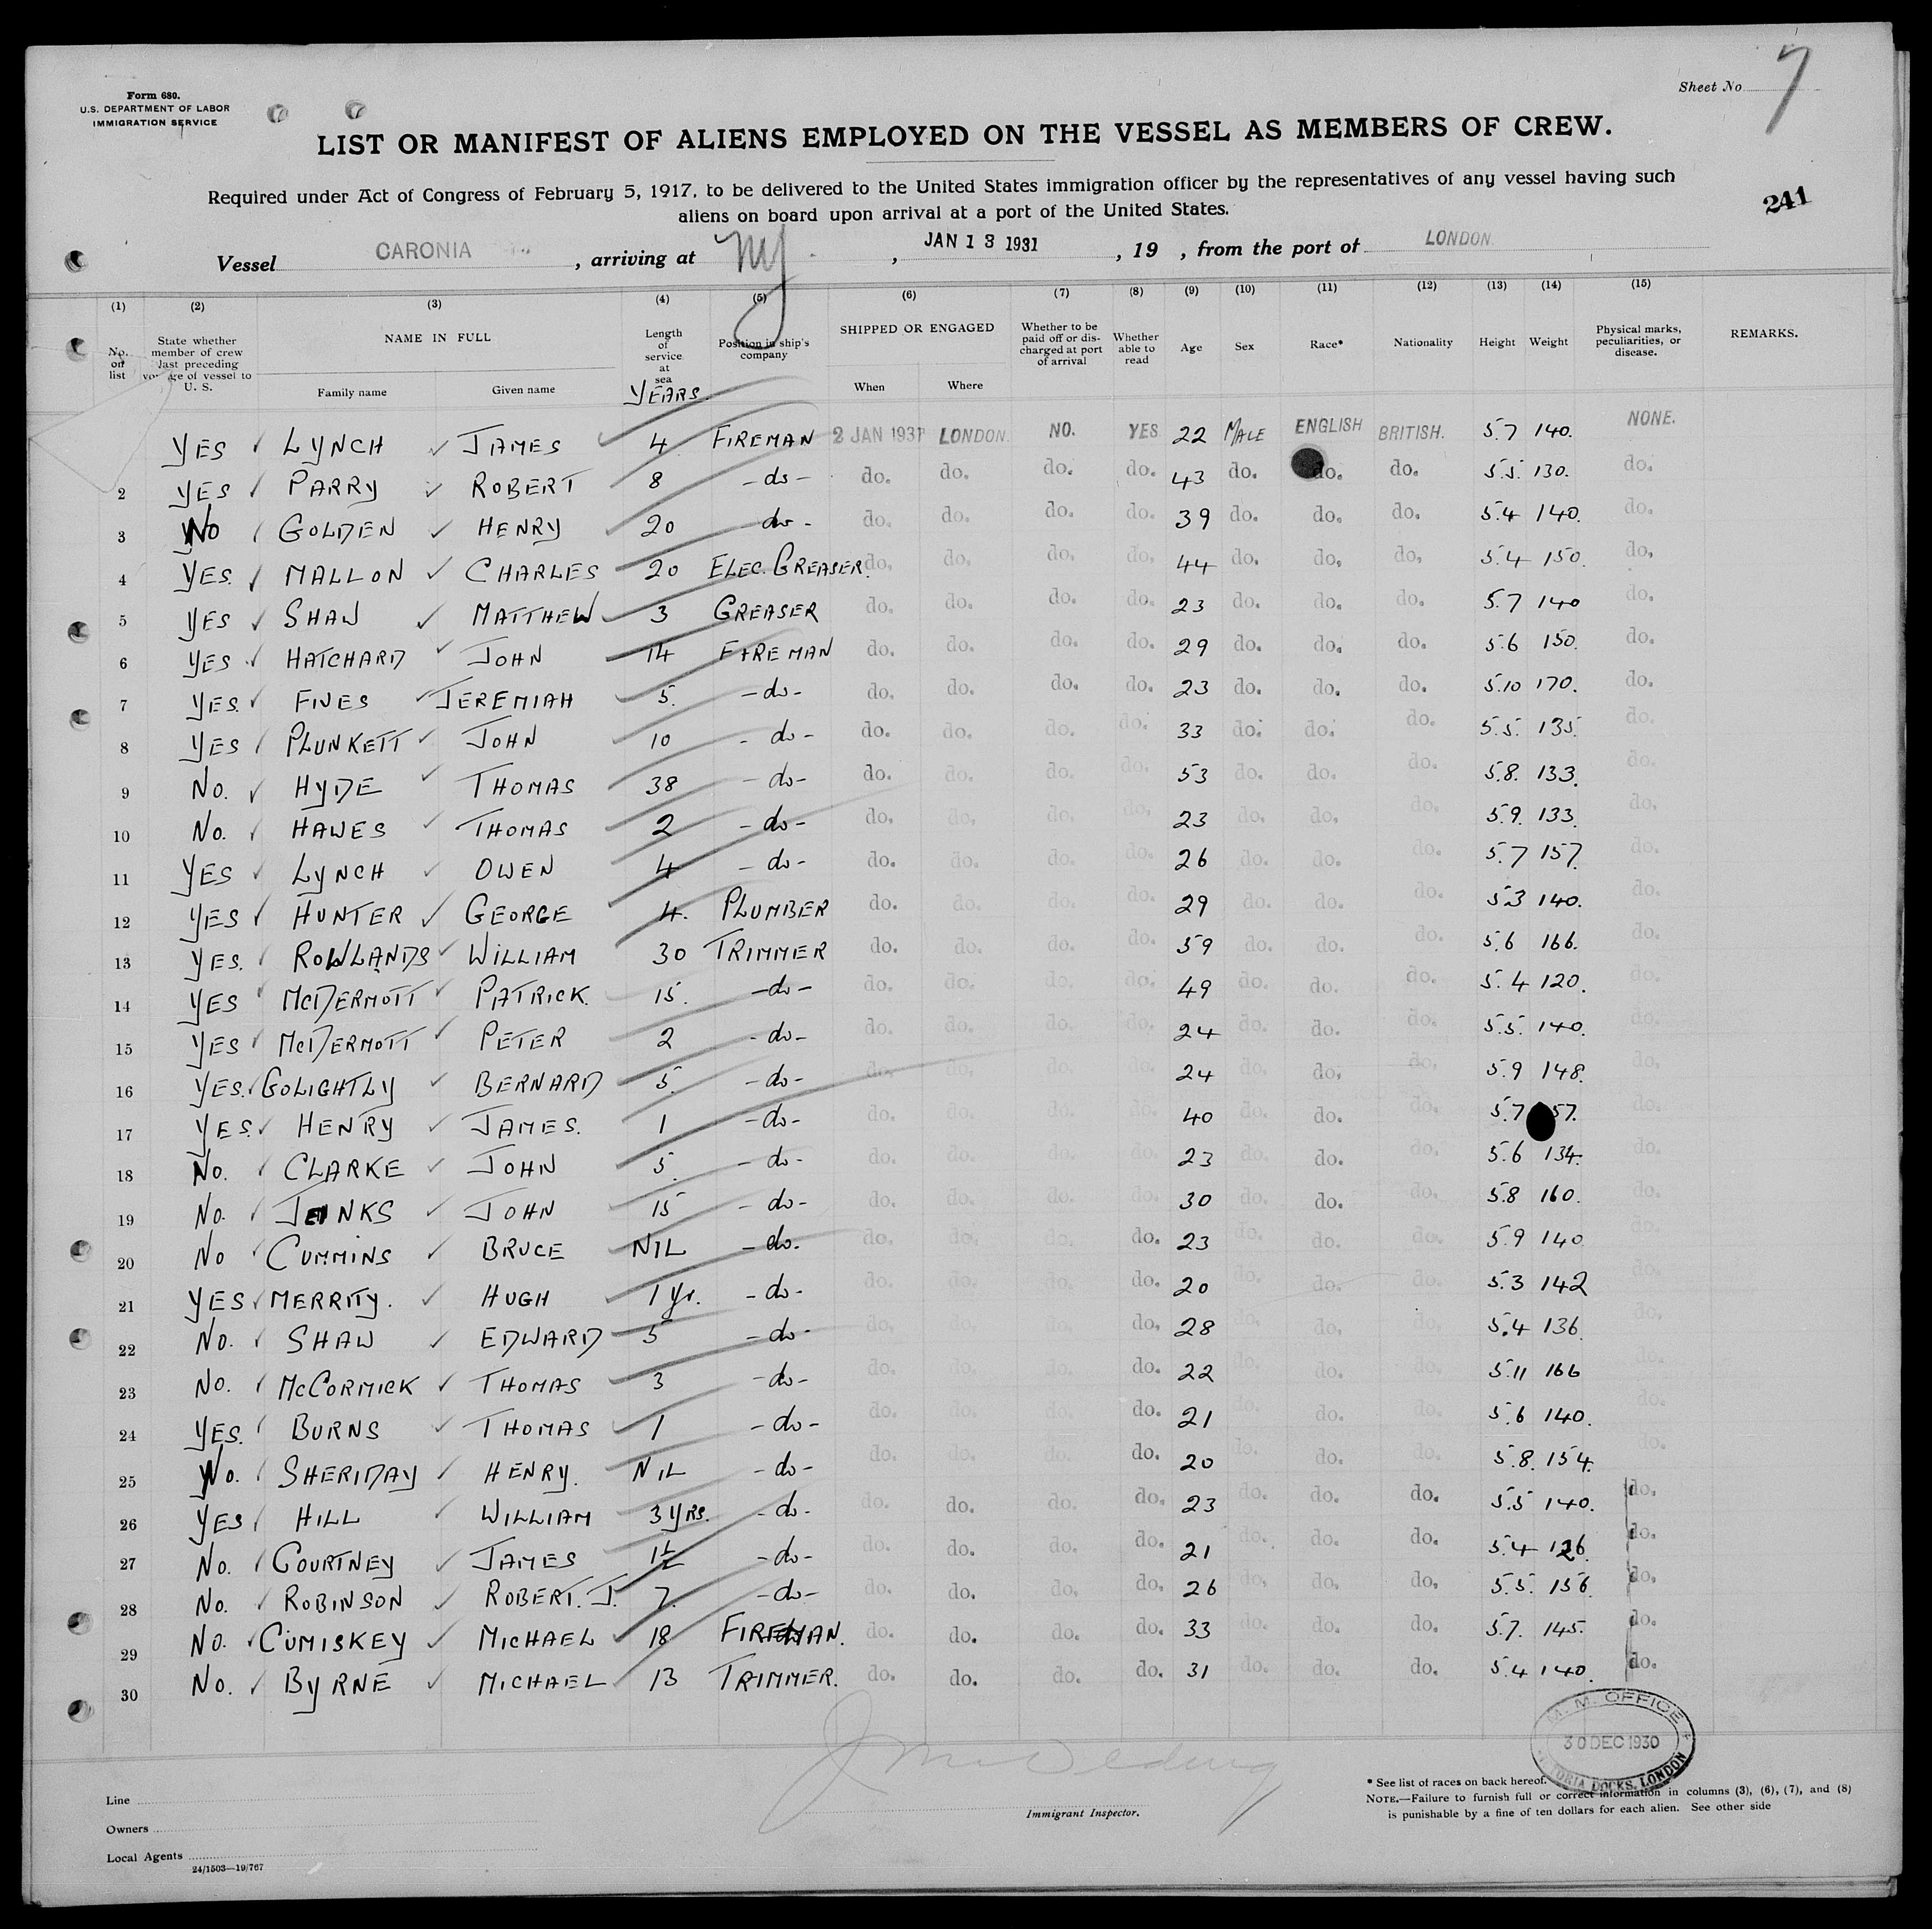 Form 680.
U.S. DEPARTMENT OF LABOR
IMMIGRATION SERVICE
Sheet No 7
LIST OR MANIFEST OF ALIENS EMPLOYED ON THE VESSEL AS MEMBERS OF CREW.
Required under Act of Congress of February 5, 1917, to be delivered to the United States immigration officer by the representatives of any vessel having such
aliens on board upon arrival at a port of the United States.
241
Vessel CARONIA, arriving at NY, JAN 13 1931, 19 , from the port of LONDON.
(1) (2) (3) (4) (5) (6) (7) (8) (9) (10) (11) (12) (13) (14) (15)
No. on list State whether member of crew last preceding voyage of vessel to U. S. NAME IN FULL Family name Given name Length of service at sea YEARS. Position in ship's company SHIPPED OR ENGAGED When Where Whether to be paid off or discharged at port of arrival Whether able to read Age Sex Race* Nationality Height Weight Physical marks, peculiarities, or disease. REMARKS.
YES LYNCH JAMES 4 FIREMAN 2 JAN 1931 LONDON. NO. YES 22 MALE ENGLISH BRITISH. 5.7 140. NONE.
2 YES PARRY ROBERT 8 -do- do. do. do. do. 43 do. do. do. 5.5. 130. do.
3 NO GOLDEN HENRY 20 -do- do. do. do. do. 39 do. do. do. 5.4 140. do.
4 YES. MALLON CHARLES 20 ELEC. GREASER. do. do. do. do. 44 do. do. do. 5.4 150. do.
5 YES SHAW MATTHEW 3 GREASER do. do. do. do. 23 do. do. do. 5.7 140 do.
6 YES HATCHARD JOHN 14 FIREMAN do. do. do. do. 29 do. do. do. 5.6 150. do.
7 YES. FIVES JEREMIAH 5. -do- do. do. do. do. 23 do. do. do. 5.10 170. do.
8 YES PLUNKETT JOHN 10 -do- do. do. do. do. 33 do. do. do. 5.5. 135. do.
9 NO. HYDE THOMAS 38 -do- do. do. do. do. 53 do. do. do. 5.8. 133. do.
10 NO. HAWES THOMAS 2 -do- do. do. do. do. 23 do. do. do. 5.9. 133. do.
11 YES LYNCH OWEN 4 -do- do. do. do. do. 26 do. do. do. 5.7 157. do.
12 YES HUNTER GEORGE 4. PLUMBER do. do. do. do. 29 do. do. do. 5.3 140. do.
13 YES. ROWLANDS WILLIAM 30 TRIMMER do. do. do. do. 59 do. do. do. 5.6 166. do.
14 YES McDERMOTT PATRICK. 15. -do- do. do. do. do. 49 do. do. do. 5.4 120. do.
15 YES McDERMOTT PETER 2 -do- do. do. do. do. 24 do. do. do. 5.5. 140. do.
16 YES. GOLIGHTLY BERNARD 5. -do- do. do. do. do. 24 do. do. do. 5.9 148. do.
17 YES. HENRY JAMES. 1 -do- do. do. do. do. 40 do. do. do. 5.7 57. do.
18 NO. CLARKE JOHN 5. -do- do. do. do. do. 23 do. do. do. 5.6 134. do.
19 NO. JENKS JOHN 15 -do- do. do. do. do. 30 do. do. do. 5.8 160. do.
20 NO CUMMINS BRUCE NIL -do. do. do. do. do. 23 do. do. do. 5.9 140 do.
21 YES MERRITY. HUGH 1 yr. -do- do. do. do. do. 20 do. do. do. 5.3 142 do.
22 NO. SHAW EDWARD 5 -do- do. do. do. do. 28 do. do. do. 5.4 136 do.
23 NO. McCORMICK THOMAS 3 -do- do. do. do. do. 22 do. do. do. 5.11 166 do.
24 YES. BURNS THOMAS 1 -do- do. do. do. do. 21 do. do. do. 5.6 140. do.
25 NO. SHERIDAY HENRY. NIL -do- do. do. do. do. 20 do. do. do. 5.8. 154. do.
26 YES HILL WILLIAM 3 YRS. -do- do. do. do. do. 23 do. do. do. 5.5 140. do.
27 NO. COURTNEY JAMES 1½ -do- do. do. do. do. 21 do. do. do. 5.4 126. do.
28 NO. ROBINSON ROBERT. J. 7. -do- do. do. do. do. 26 do. do. do. 5.5. 156. do.
29 NO. CUMISKEY MICHAEL 18 FIREMAN. do. do. do. do. 33 do. do. do. 5.7. 145. do.
30 NO. BYRNE MICHAEL 13 TRIMMER. do. do. do. do. 31 do. do. do. 5.4 140. do.
M. M. OFFICE
30 DEC 1930
TORIA DOCKS, LONDON
Line
Owners
Local Agents
24/1503—19/767
Immigrant Inspector.
* See list of races on back hereof.
NOTE.—Failure to furnish full or correct information in columns (3), (6), (7), and (8)
is punishable by a fine of ten dollars for each alien. See other side